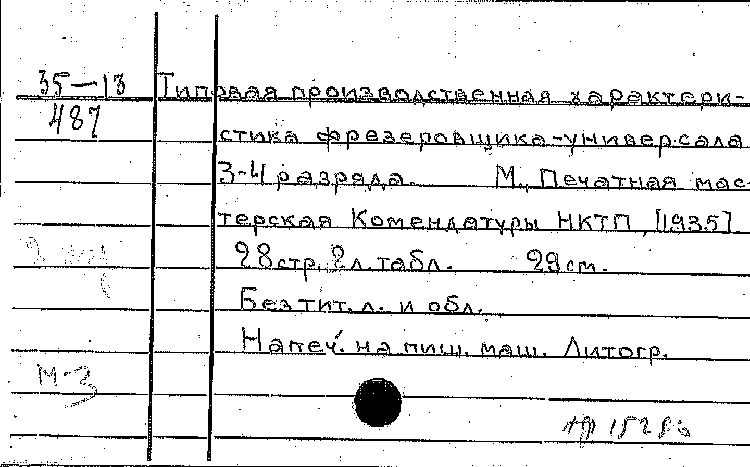 35-13
487
Типовая производственная характери-
стика фрезеровщика-универсала
3-4 разряда. М., Печатная мас-
терская Комендатуры НКТП, [1935]
28 стр. 2 л. табл. 29 см.
Без тит. л. и обл.
Напеч. на пиш. маш. Литогр.
М-3